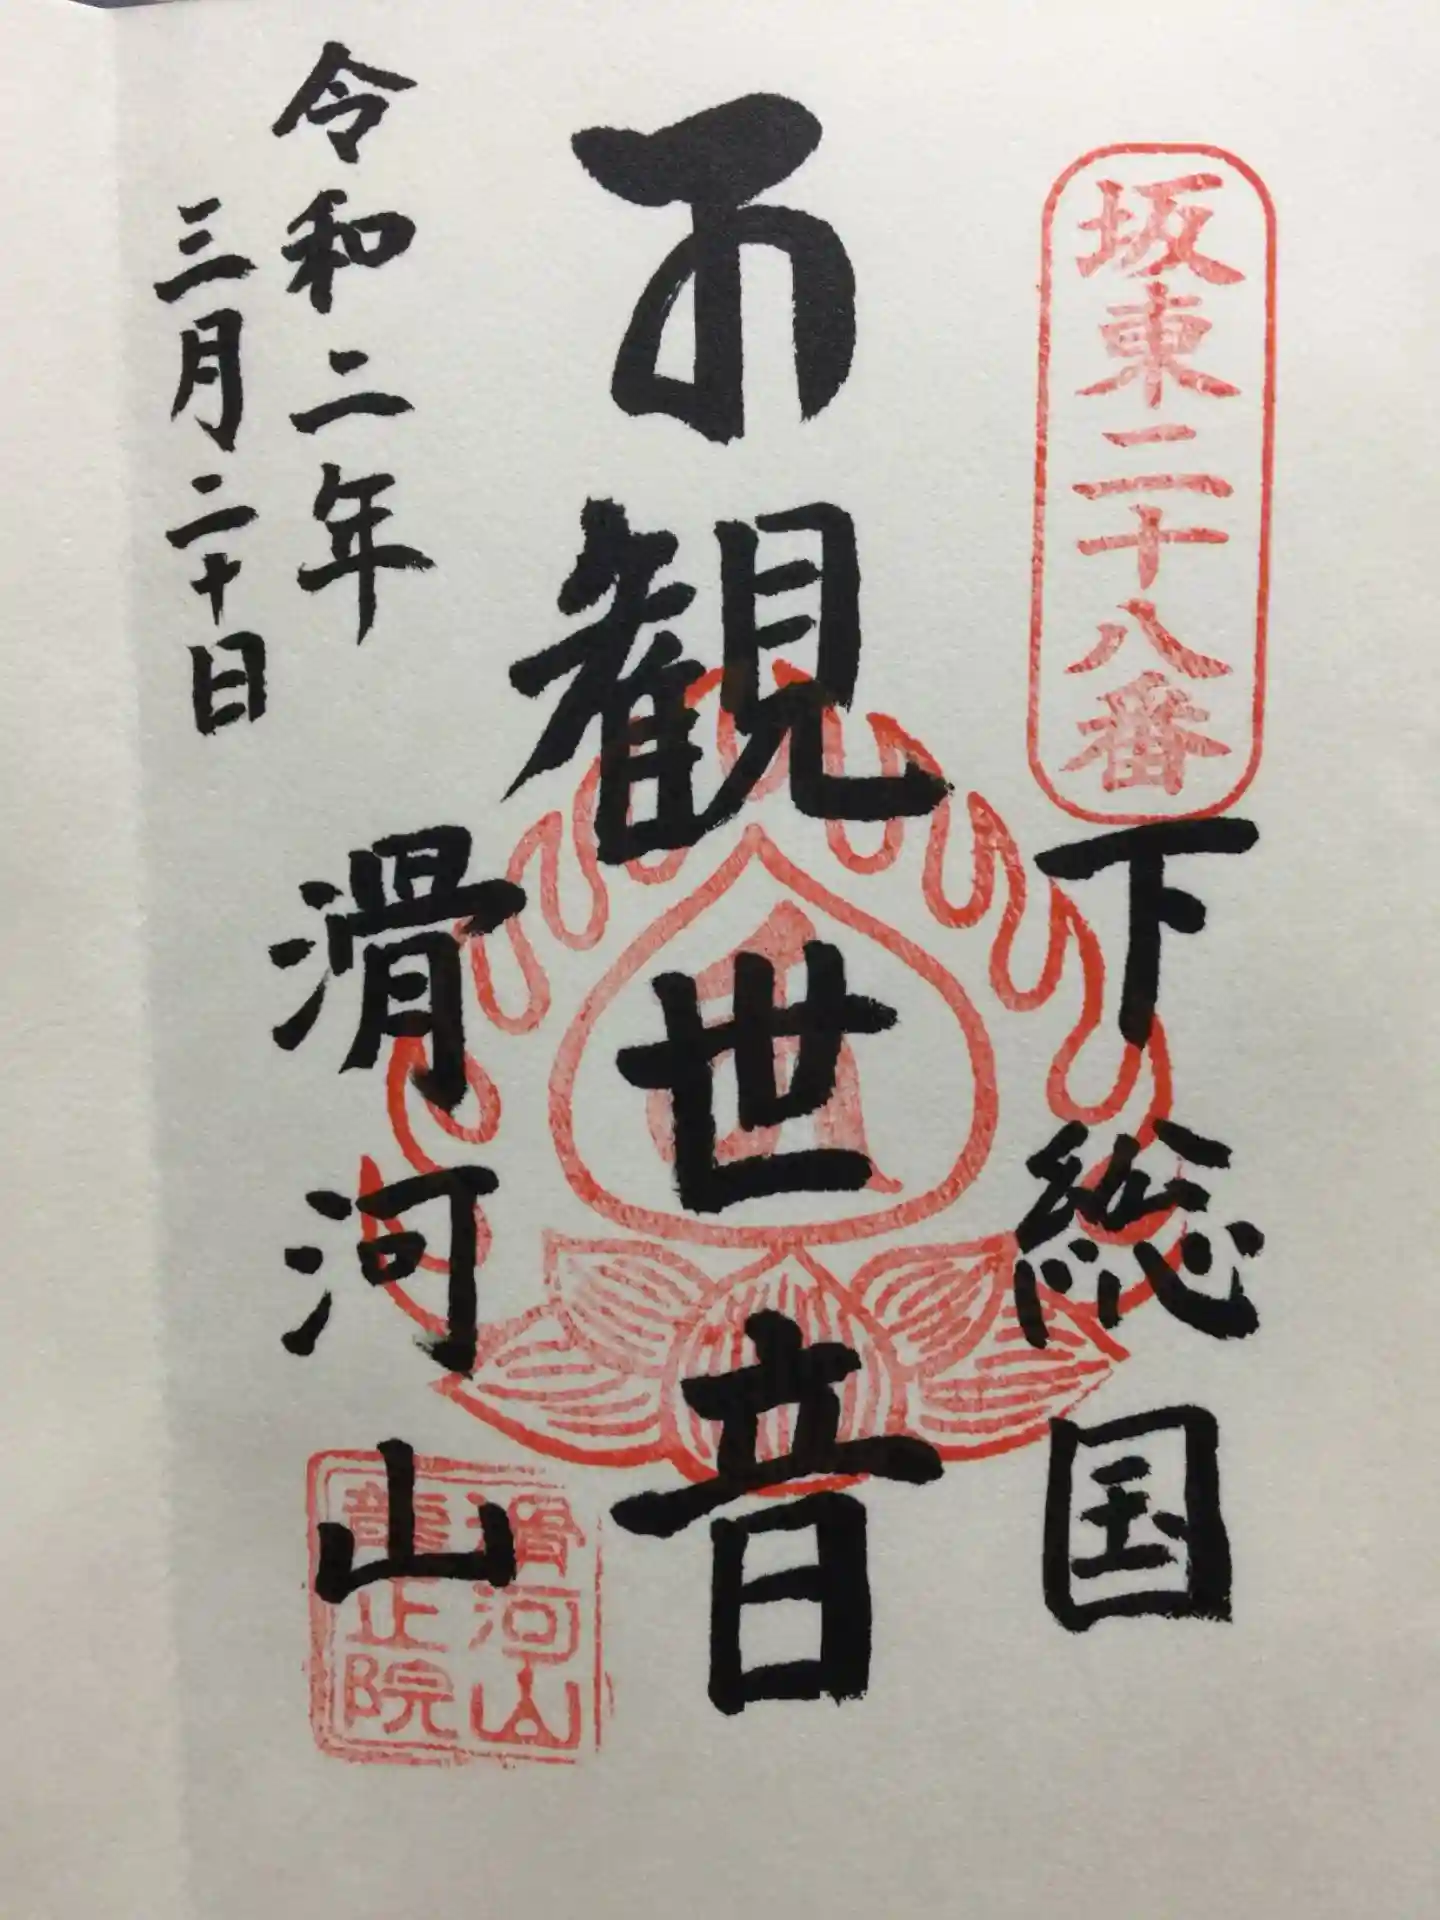 坂東二十八番
下総国
観世音
令和二年
三月二十日
滑河山
滑河山
龍正院